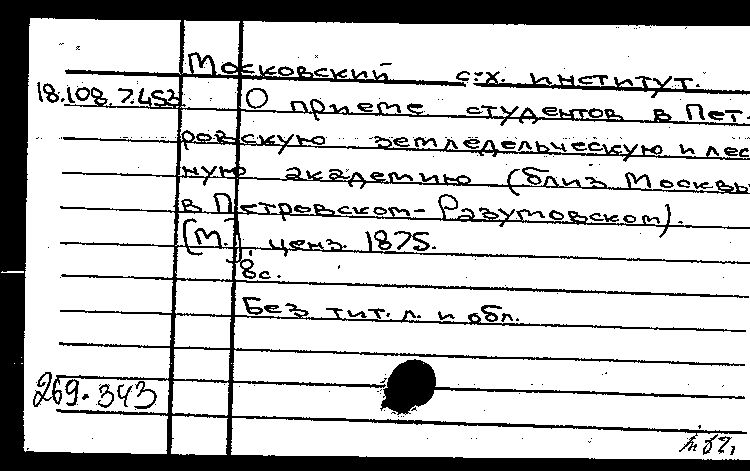 Московский с.-х. институт.
18.108.7.453 О приеме студентов в Пет-
ровскую земледельческую и лес
ную академию (близ Москвы
в Петровском-Разумовском).
[М.], ценз. 1875.
8с.
Без тит. л. и обл.
269.343